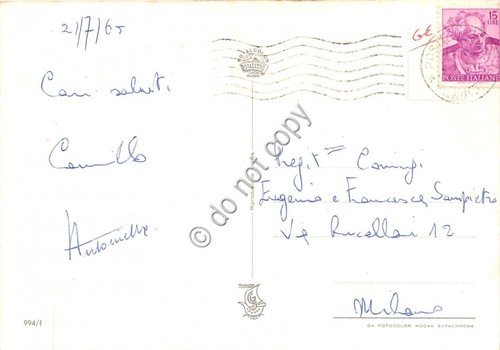 21/7/65
Cari saluti
Camillo
Antonella
994/f
do not copy
15
LIRE
POSTE ITALIANE
Preg.mi Coniugi
Eugenio e Francesca Sampietro
Via Rucellai 12
Milano
DA FOTOCOLOR KODAK EKTACHROME